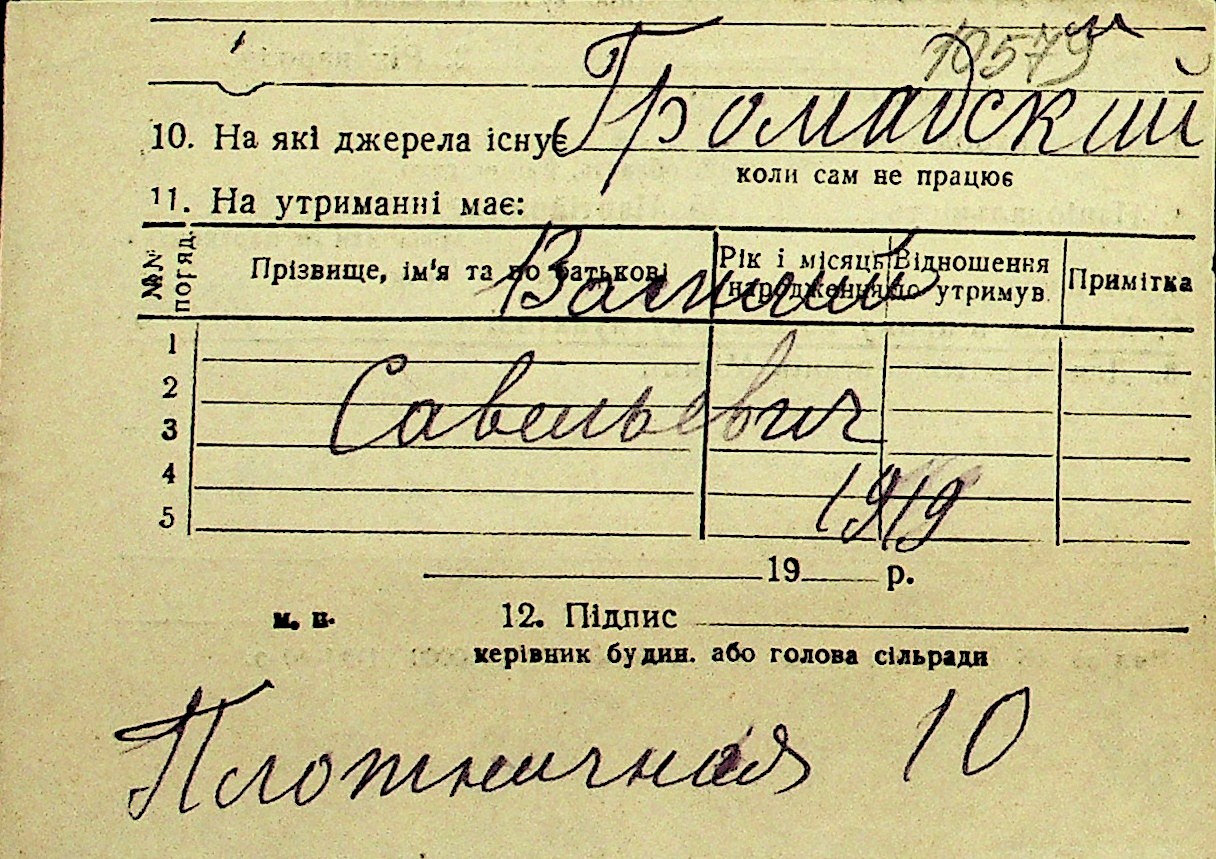 10579
Громадский
10. На які джерела існує
коли сам не працює
11. На утриманні має:
№№ погляд. Прізвище, ім'я та по батькові Рік і місяць народження Відношення до утримув. Примітка
Василь
1
2
Савельевич
3
4
1919
5
19 р.
м. п. 12. Підпис
керівник будин. або голова сільради
Плотничная 10